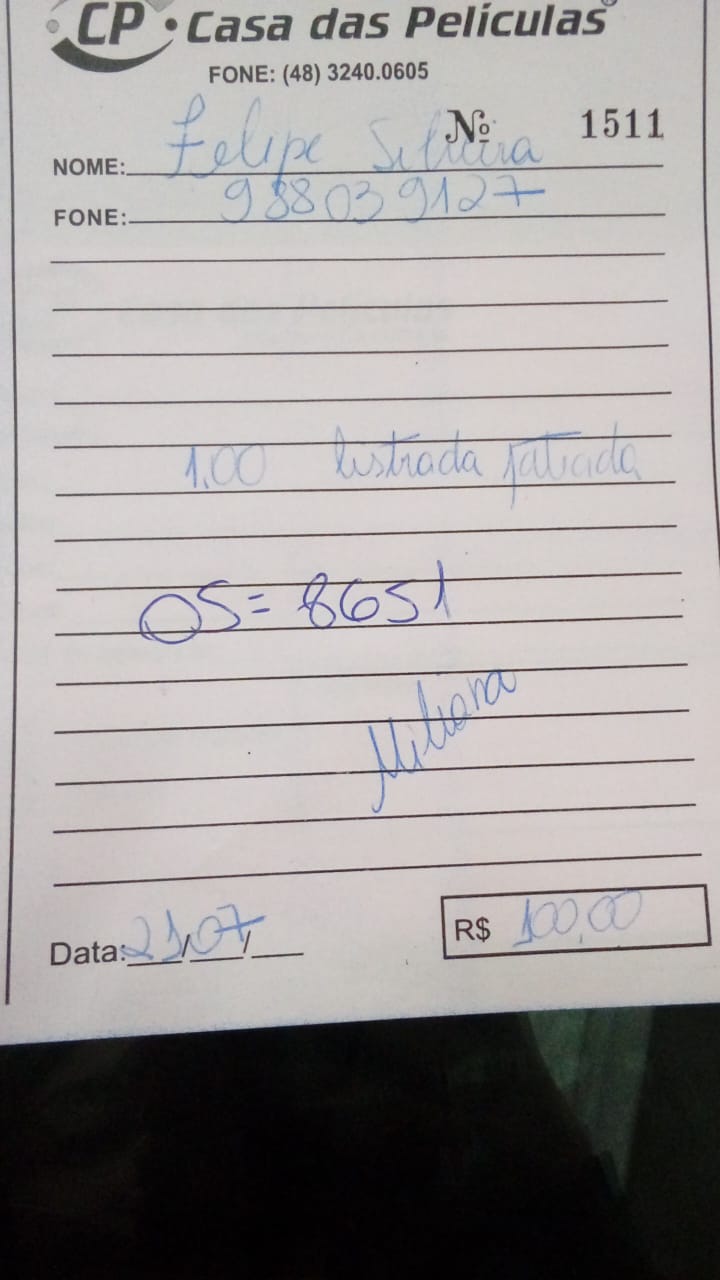 CP • Casa das Películas
FONE: (48) 3240.0605
Nº 1511
NOME: Felipe Silveira
FONE: 988039127
1,00 listrada
OS = 8651
Data: 21/07/
R$ 100,00